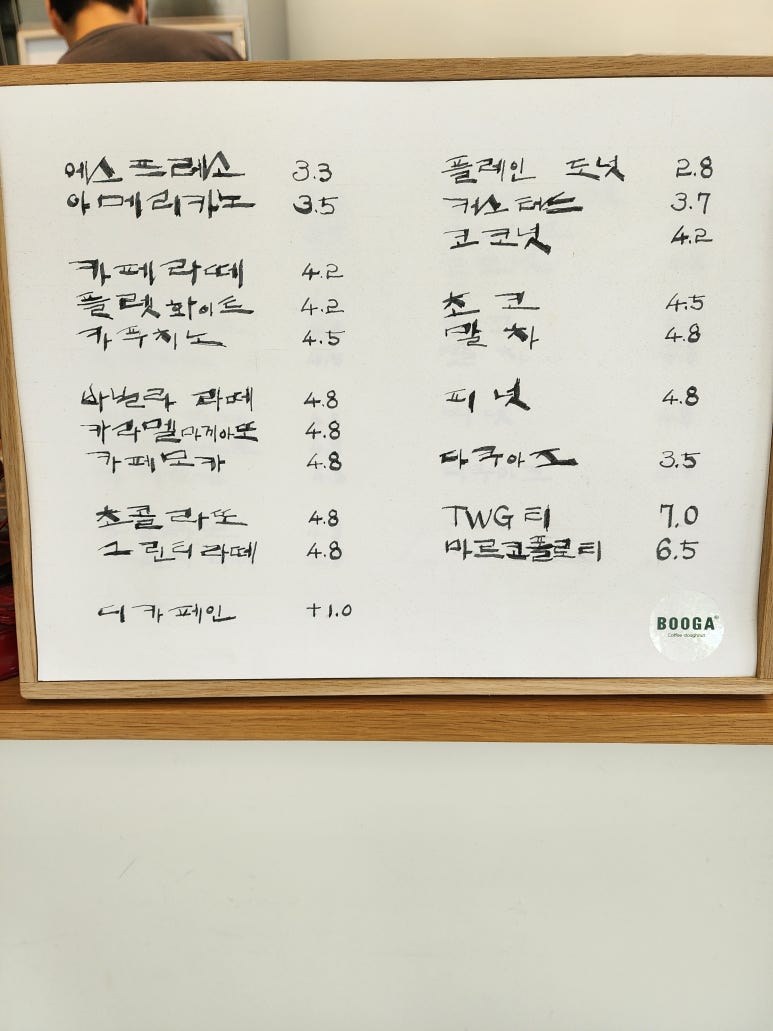 에스프레소 3.3
아메리카노 3.5
카페라떼 4.2
플렛화이트 4.2
카푸치노 4.5
바닐라 라떼 4.8
카라멜마끼아또 4.8
카페모카 4.8
초콜라또 4.8
그린티라떼 4.8
디카페인 +1.0
플레인 도넛 2.8
커스터드 3.7
코코넛 4.2
초코 4.5
말차 4.8
피넛 4.8
다쿠아즈 3.5
TWG 티 7.0
마르코폴로티 6.5
BOOGA
Coffee doughnut